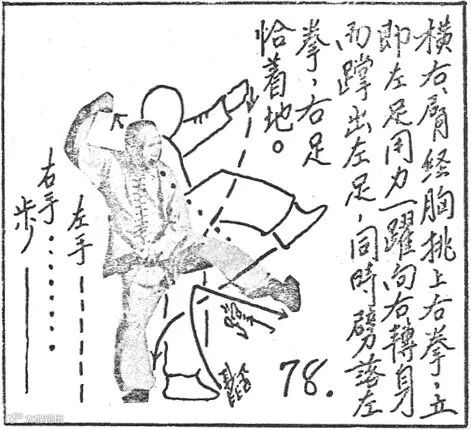 橫右臂経胸挑上右拳，立
即左足用力一躍向右轉身
而蹬出左足，同時劈落左
拳，右足
恰着地。
右手……
左手
步
蹬
78.